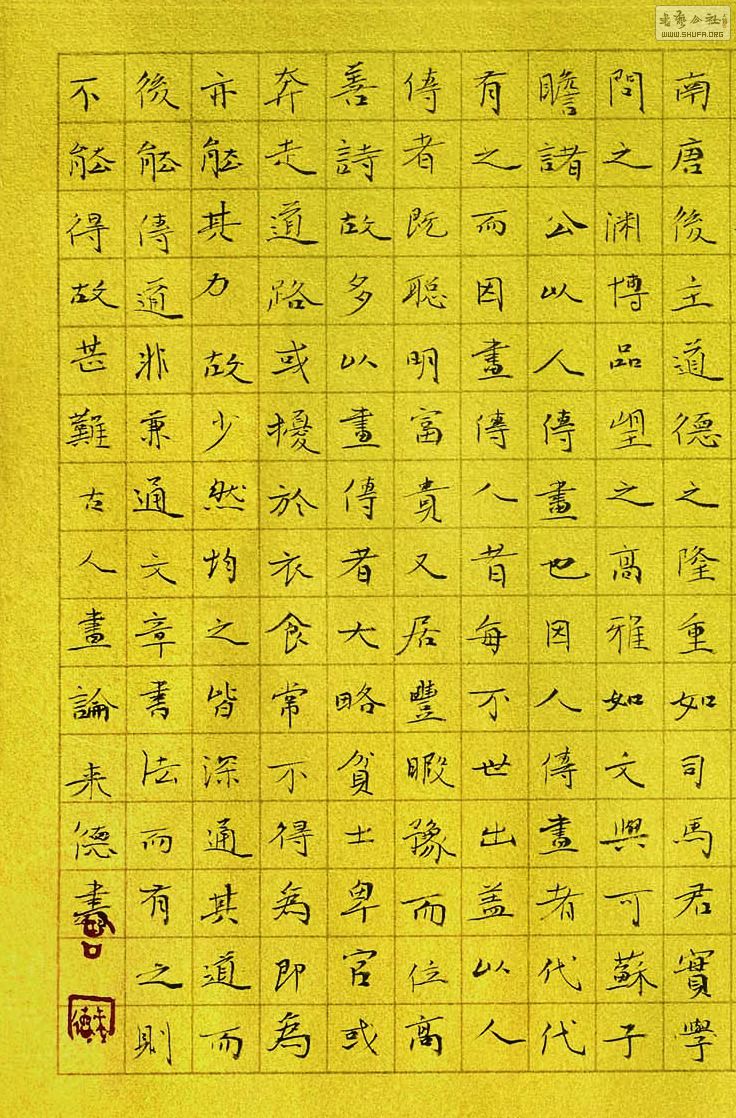 書藝公社
WWW.SHUFA.ORG
南唐後主道德之隆重如司馬君實學
問之渊博品望之高雅如文與可蘇子
瞻諸公以人傳畫也因人傳畫者代代
有之而因畫傳人昔每不世出盖以人
傳者既聪明富貴又居豐暇豫而位高
善詩故多以畫傳者大略貧士卑官或
奔走道路或擾於衣食常不得為即為
亦能其力故少然均之皆深通其道而
後能傳道非兼通文章書法而有之則
不能得故甚難古人畫論来德書